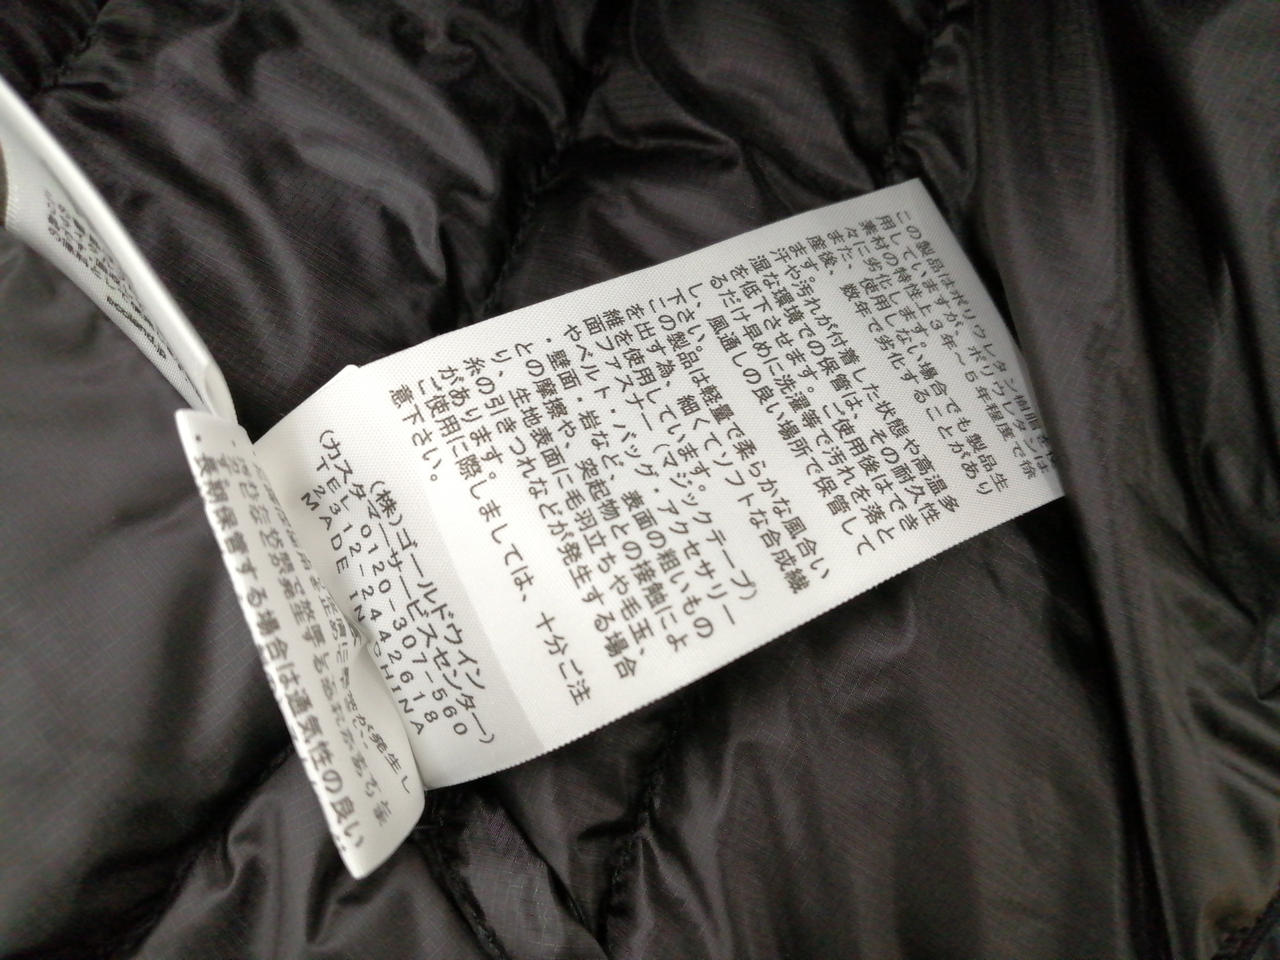 この製品はポリウレタン樹脂を使
用していますが、ポリウレタンは
素材の特性上3年～5年程度で徐
々に劣化します。
また、使用しない場合でも製品生
産後、数年で劣化することがあり
ます。
汗や汚れが付着した状態や高温多
湿な環境での保管は、その耐久性
を低下させます。ご使用後はでき
るだけ早めに洗濯等で汚れを落と
し、風通しの良い場所で保管して
下さい。
この製品は軽量で柔らかな風合い
を出す為、細くてソフトな合成繊
維を使用しています。
面ファスナー（マジックテープ）
やベルト・バッグ・アクセサリー
・壁面・岩など、表面の粗いもの
との摩擦や、突起物との接触によ
り、生地表面に毛羽立ちや毛玉、
糸の引きつれなどが発生する場合
があります。
ご使用に際しましては、十分ご注
意下さい。
(株)ゴールドウイン
(カスタマーサービスセンター)
TEL 0120-307-560
N2312-2442618
MADE IN CHINA
長期保管する場合は通気性の良い